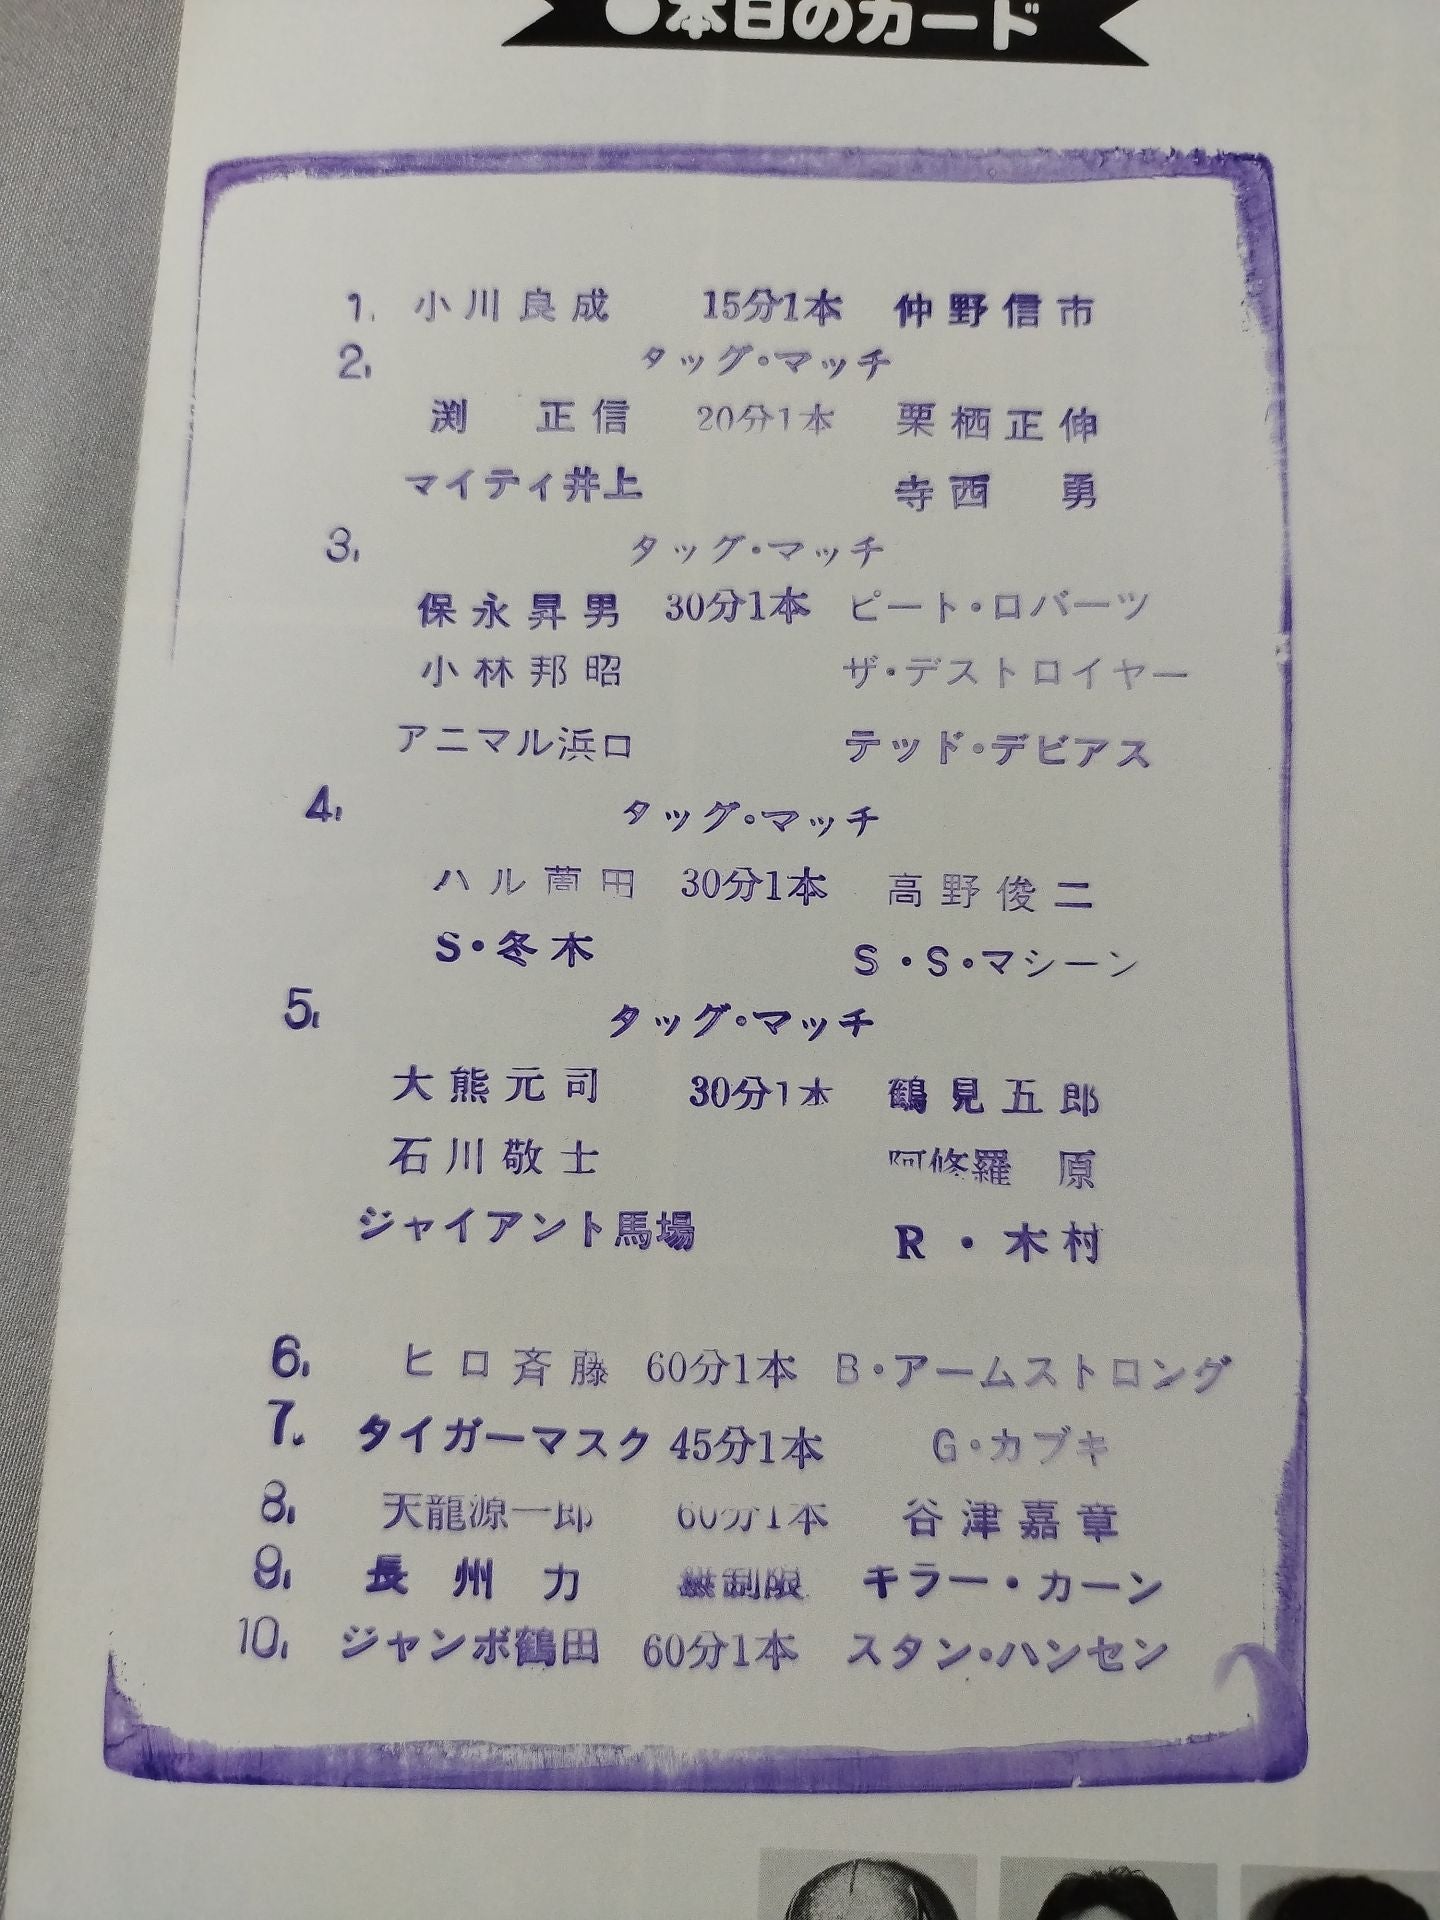 ●本日のカード
1. 小川良成 15分1本 仲野信市
2. タッグ・マッチ
渕 正信 20分1本 栗栖正伸
マイティ井上 寺西 勇
3. タッグ・マッチ
保永昇男 30分1本 ピート・ロバーツ
小林邦昭 ザ・デストロイヤー
アニマル浜口 テッド・デビアス
4. タッグ・マッチ
ハル薗田 30分1本 高野俊二
S・冬木 S・S・マシーン
5. タッグ・マッチ
大熊元司 30分1本 鶴見五郎
石川敬士 阿修羅 原
ジャイアント馬場 R・木村
6. ヒロ斉藤 60分1本 B・アームストロング
7. タイガーマスク 45分1本 G・カブキ
8. 天龍源一郎 60分1本 谷津嘉章
9. 長州力 無制限 キラー・カーン
10. ジャンボ鶴田 60分1本 スタン・ハンセン